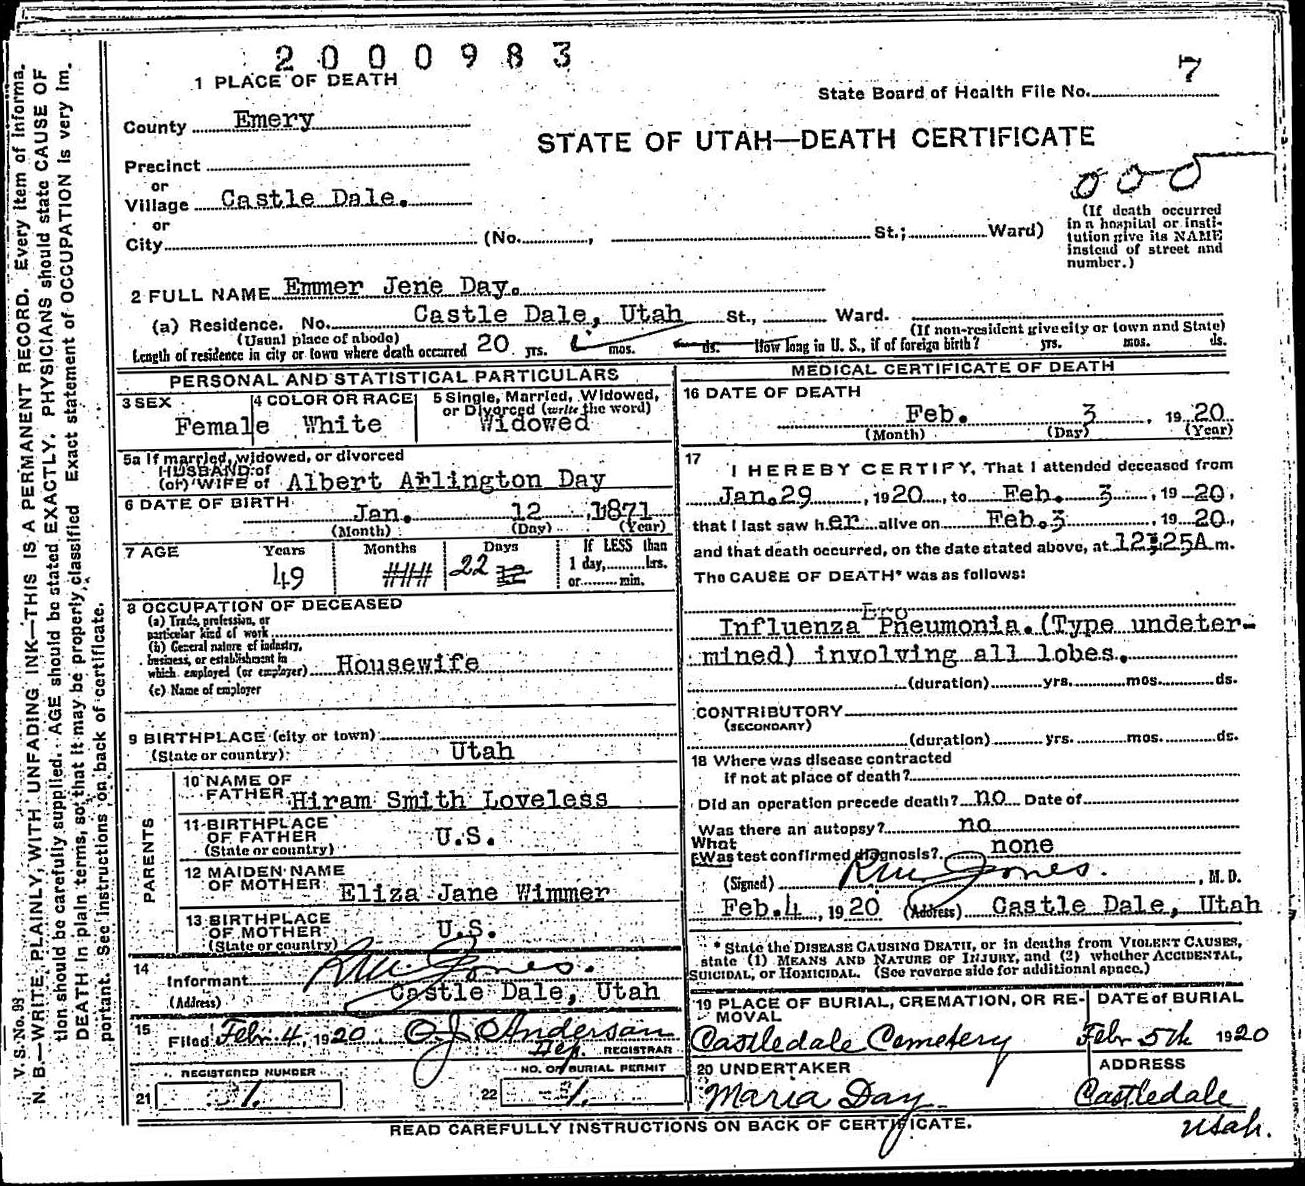 2000983
1 PLACE OF DEATH
7
State Board of Health File No.
County Emery
STATE OF UTAH—DEATH CERTIFICATE
Precinct
or
Village Castle Dale.
or
City (No. , St.; Ward)
000
(If death occurred
in a hospital or insti-
tution give its NAME
instead of street and
number.)
2 FULL NAME Emmer Jene Day.
(a) Residence. No. Castle Dale, Utah St., Ward.
(Usual place of abode) (If non-resident give city or town and State)
Length of residence in city or town where death occurred 20 yrs. mos. ds. How long in U. S., if of foreign birth? yrs. mos. ds.
PERSONAL AND STATISTICAL PARTICULARS
3 SEX 4 COLOR OR RACE 5 Single, Married, Widowed,
or Divorced (write the word)
Female White Widowed
5a If married, widowed, or divorced
HUSBAND of
(or) WIFE of Albert Arlington Day
6 DATE OF BIRTH Jan. 12, 1871
(Month) (Day) (Year)
7 AGE Years Months Days If LESS than
1 day, hrs.
or min.
49 ### 22 12
8 OCCUPATION OF DECEASED
(a) Trade, profession, or
particular kind of work
(b) General nature of industry,
business, or establishment in
which employed (or employer) Housewife
(c) Name of employer
9 BIRTHPLACE (city or town)
(State or country) Utah
PARENTS
10 NAME OF
FATHER Hiram Smith Loveless
11 BIRTHPLACE
OF FATHER U.S.
(State or country)
12 MAIDEN NAME
OF MOTHER Eliza Jane Wimmer
13 BIRTHPLACE
OF MOTHER U.S.
(State or country)
14
Informant R M Jones.
(Address) Castle Dale, Utah
15
Filed Feb. 4, 1920 O J Anderson
Dep. REGISTRAR
REGISTERED NUMBER NO. OF BURIAL PERMIT
21 31. 22 31.
MEDICAL CERTIFICATE OF DEATH
16 DATE OF DEATH
Feb. 3, 1920
(Month) (Day) (Year)
17
I HEREBY CERTIFY, That I attended deceased from
Jan.29, 1920, to Feb. 3, 1920,
that I last saw her alive on Feb.3, 1920,
and that death occurred, on the date stated above, at 12:25A m.
The CAUSE OF DEATH* was as follows:
Bro
Influenza Pneumonia.(Type undeter-
mined) involving all lobes.
(duration) yrs. mos. ds.
CONTRIBUTORY
(SECONDARY)
(duration) yrs. mos. ds.
18 Where was disease contracted
if not at place of death?
Did an operation precede death? no Date of
Was there an autopsy? no
What
Was test confirmed diagnosis? none
(Signed) R M Jones. , M. D.
Feb.4, 1920 (Address) Castle Dale, Utah
* State the DISEASE CAUSING DEATH, or in deaths from VIOLENT CAUSES,
state (1) MEANS AND NATURE OF INJURY, and (2) whether ACCIDENTAL,
SUICIDAL, or HOMICIDAL. (See reverse side for additional space.)
19 PLACE OF BURIAL, CREMATION, OR RE-
MOVAL
DATE of BURIAL
Castledale Cemetery Feb 5th 1920
20 UNDERTAKER ADDRESS
Maria Day Castledale
Utah.
READ CAREFULLY INSTRUCTIONS ON BACK OF CERTIFICATE.
V. S. No. 98
N. B.—WRITE PLAINLY, WITH UNFADING INK—THIS IS A PERMANENT RECORD. Every item of informa-
tion should be carefully supplied. AGE should be stated EXACTLY. PHYSICIANS should state CAUSE OF
DEATH in plain terms, so that it may be properly classified. Exact statement of OCCUPATION is very im-
portant. See instructions on back of certificate.